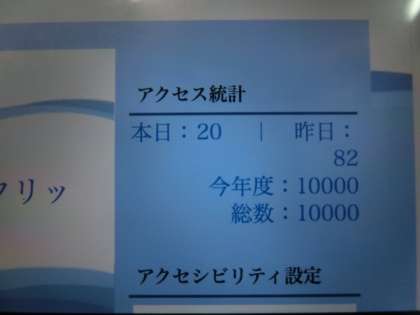 アクセス統計
本日：20 ｜ 昨日：
82
今年度：10000
クリッ
総数：10000
アクセシビリティ設定